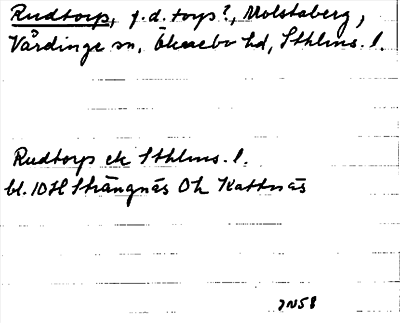 Rudtorp, f.d. torp?, Molstaberg,
Vårdinge sn, Öknebo hd, Sthlms. l.
Rudtorp ek Sthlms. l.
bl. 10H Strängnäs 0h Kattnäs
JN58